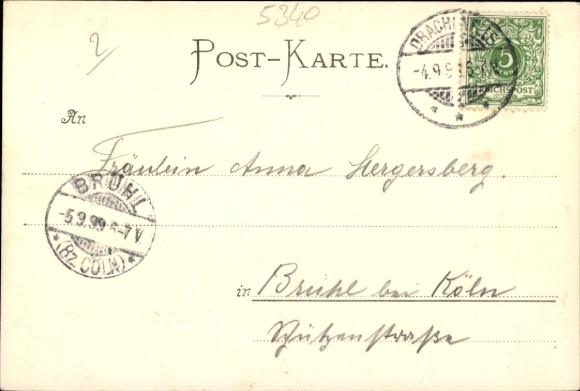 5340
2
POST-KARTE.
DRACHENFELS
-4.9.9
5
REICHSPOST
An
Fräulein Anna Hergersberg.
BRÜHL
-5.9.99 6-7V
*(BZ. CÖLN)*
in Brühl bei Köln
Schützenstraße